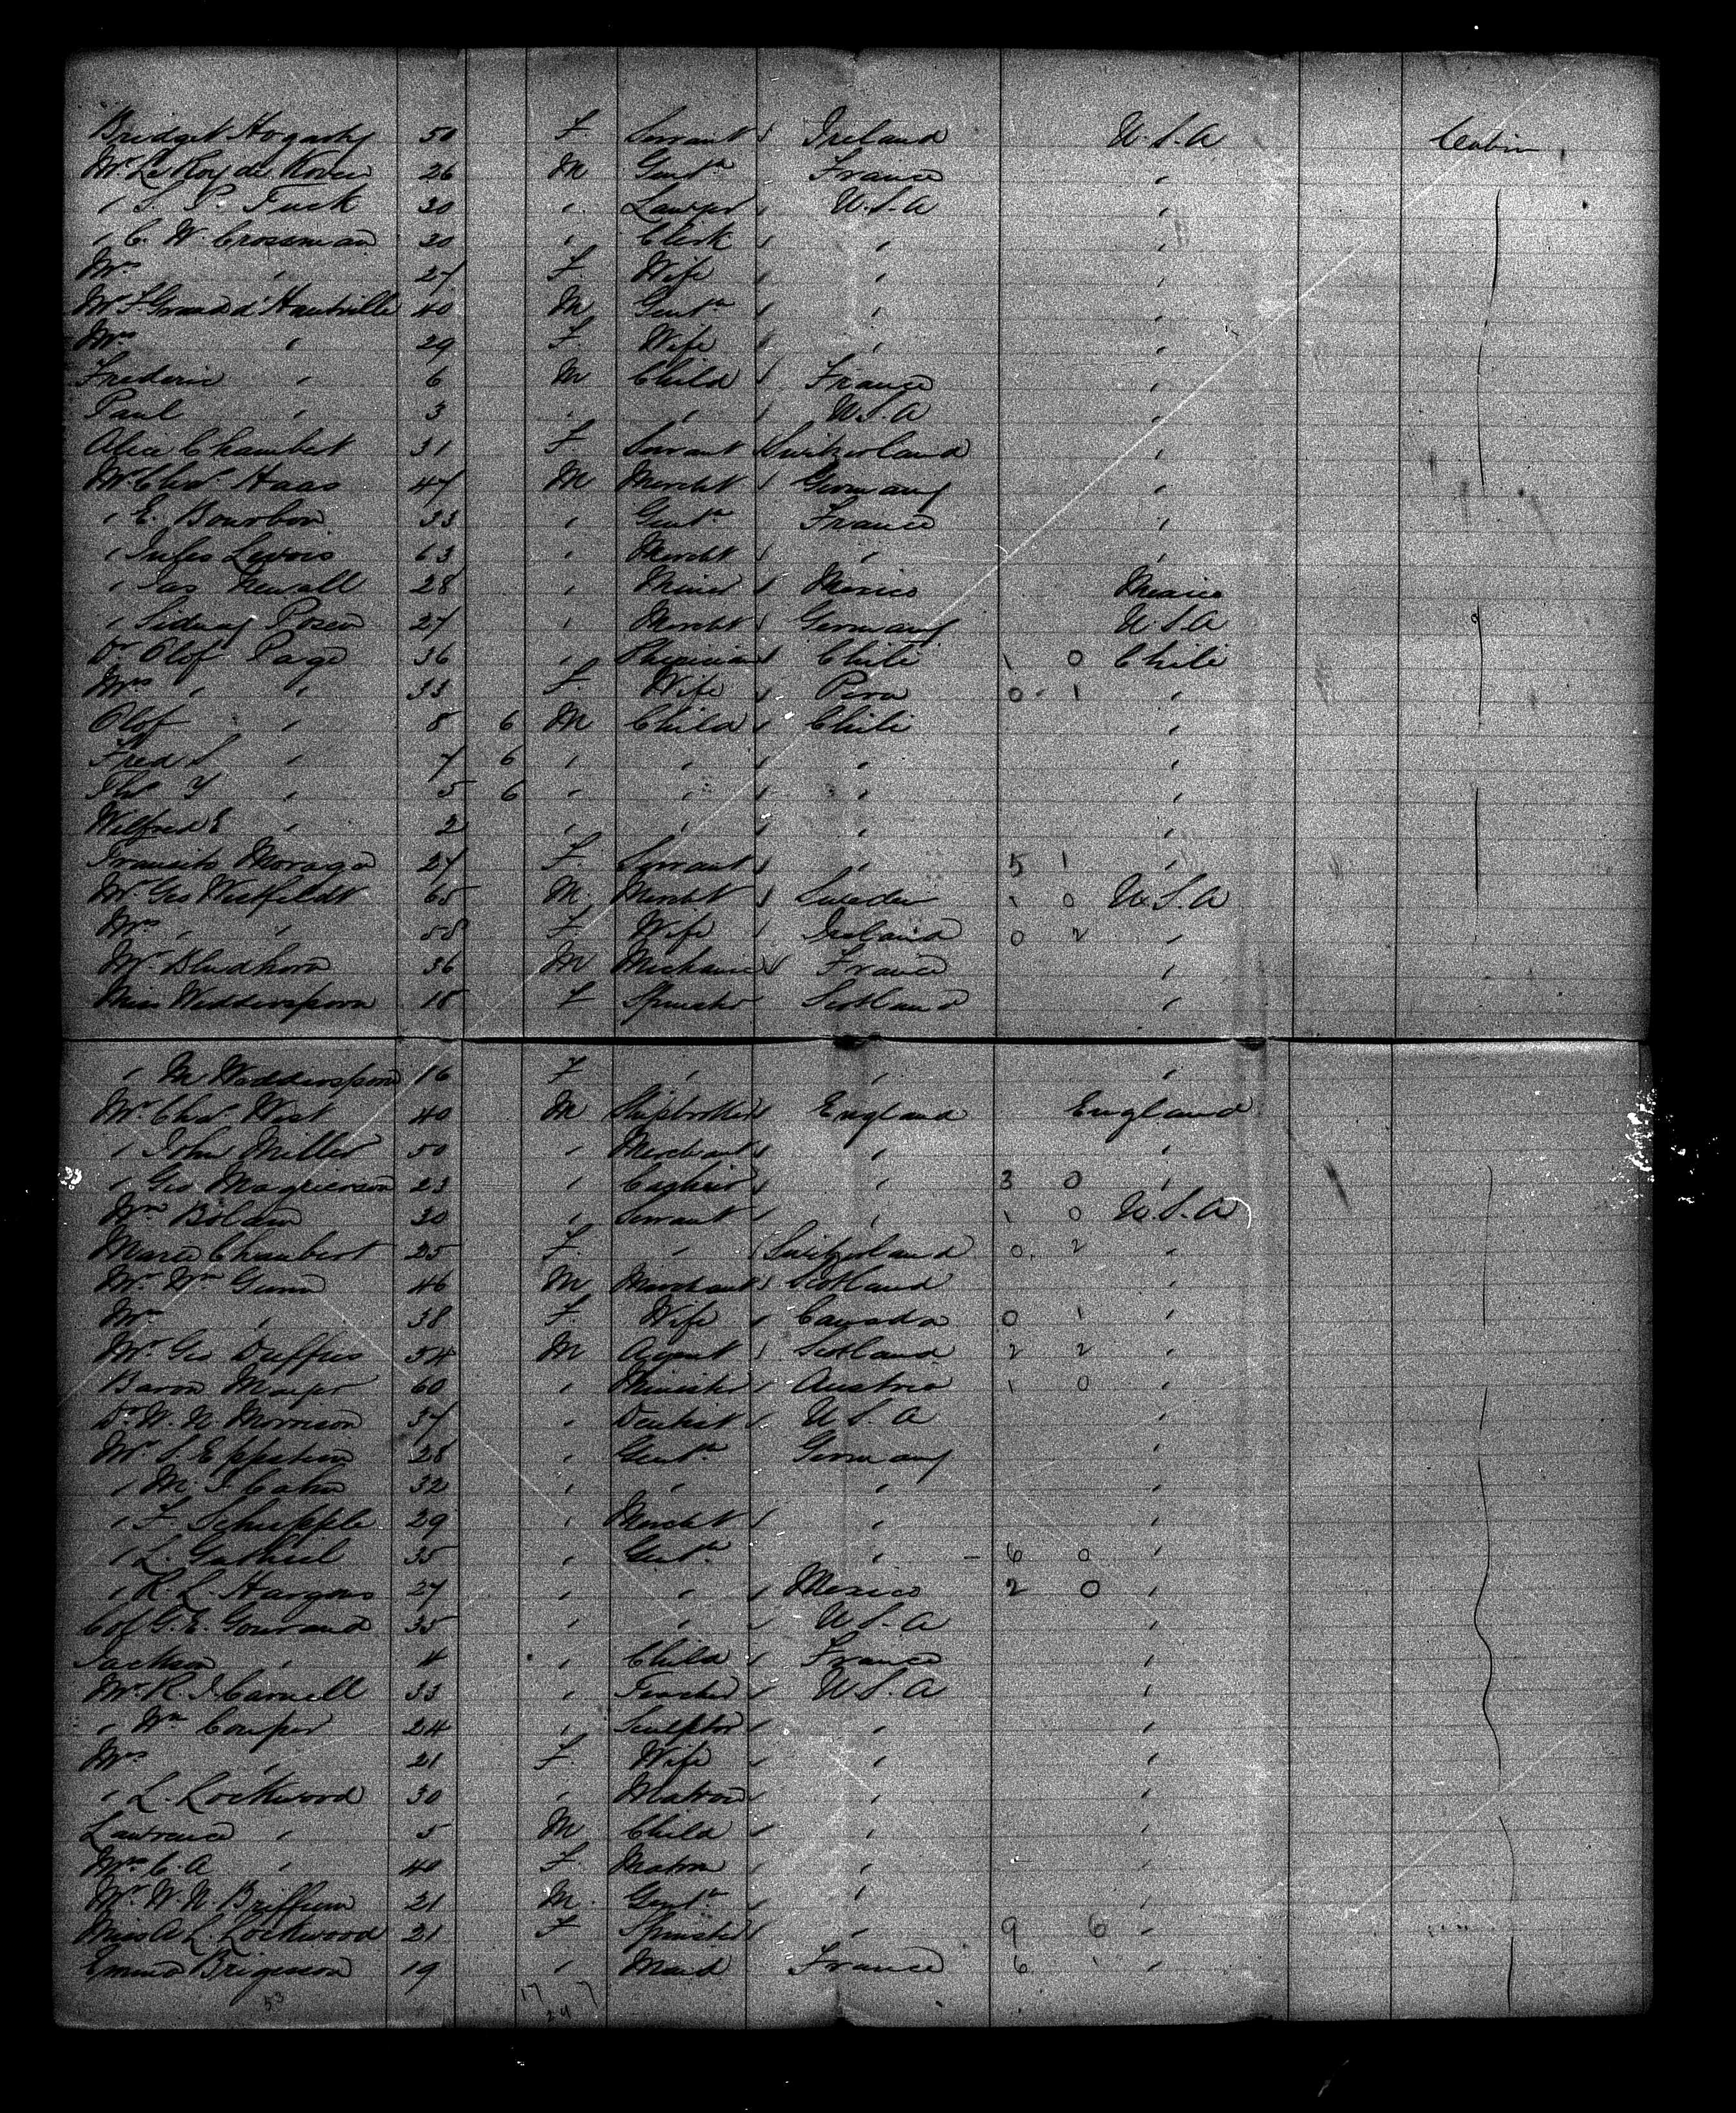 Bridget Hogarty 50 F Servant Ireland U.S.A Cabin
Mr Le Roy de Koven 26 M Gentn France "
" S. P. Tuck 30 " Lawyer U.S.A "
" C. W. Crossman 20 " Clerk " "
Mrs " 27 F Wife " "
Mr F Grand d'Hauteville 40 M Gentn " "
Mrs " 29 F. Wife " "
Frederic " 6 M Child France "
Paul " 3 " " U.S.A "
Alice Chambet 31 F Servant Switzerland "
Mr Chas Haas 47 M Mercht Germany "
" E. Bourbon 33 " Gentn France "
" Jules Levois 63 " Mercht " "
" Jas Newall 28 " Miner Mexico Mexico
" Sidney Posen 27 " Mercht Germany U.S.A
Dr Olof Page 36 " Physician Chili 1 0 Chili
Mrs " " 33 F. Wife Peru 0 1 "
Olof " 8 6 M Child Chili "
Fred S " 7 6 " " " "
Thos Y " 5 6 " " " "
Wilfred E " 2 " " " "
Transito Moraga 27 F Servant " 5 1 "
Mr Geo Westfeldt 65 M Mercht Sweden 1 0 U.S.A
Mrs " " 58 F Wife Ireland 0 2 "
Mr Bludhorn 36 M Mechanic France "
Miss Wedderspoon 18 F Spinster Scotland "
" M Wedderspoon 16 F " " "
Mr Chas West 40 M England England
" John Miller 50 " Merchant " "
" Geo Magnierson 23 " Cashier " 3 0 "
Wm Bolam 30 " Servant " 1 0 U.S.A
Marie Chambert 25 F. " Switzerland 0 2 "
Mr Wm Gunn 46 M Merchant Scotland "
Mrs " 38 F. Wife Canada 0 1 "
Mr Geo Duffus 54 M Agent Scotland 2 2 "
Baron Mayer 60 " Minister Austria 1 0 "
Dr W. N. Morrison 37 " Dentist U.S.A "
Mr S Eppstein 28 " Gentn Germany "
" M. J. Cahn 32 " " " "
" F Schupple 29 " Mercht " "
" L. Guthiel 35 " Gentn " 6 0 "
" R. L. Hargous 27 " " Mexico 2 0 "
Col G. E. Gouraud 35 " " U.S.A "
Jackson " 4 " Child France "
Mr R. J. Carnell 33 " Teacher U.S.A "
" Wm Couper 24 " Sculptor " "
Mrs " 21 F. Wife " "
" L. Lockwood 30 " Matron " "
Lawrence " 5 M Child " "
Mrs C. A " 40 F. Matron " "
Mr W. N. 21 M. Gentn " "
Miss A L Lockwood 21 F Spinster " 9 6 "
Emma 19 " Maid France 6 1 "
53 17 7
24